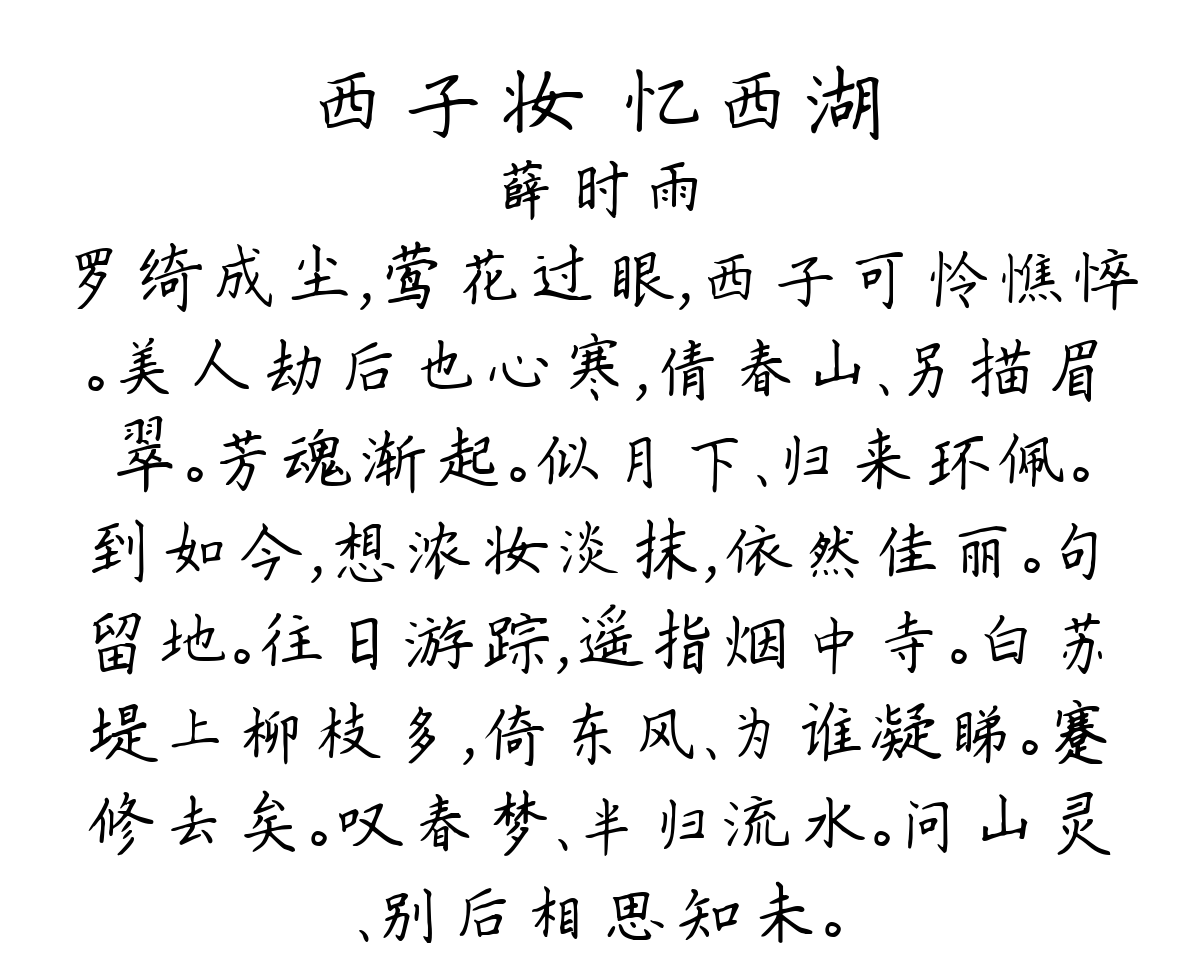 西子妆 忆西湖
薛时雨
罗绮成尘,莺花过眼,西子可怜憔悴
。美人劫后也心寒,倩春山、另描眉
翠。芳魂渐起。似月下、归来环佩。
到如今,想浓妆淡抹,依然佳丽。句
留地。往日游踪,遥指烟中寺。白苏
堤上柳枝多,倚东风、为谁凝睇。蹇
修去矣。叹春梦、半归流水。问山灵
、别后相思知未。